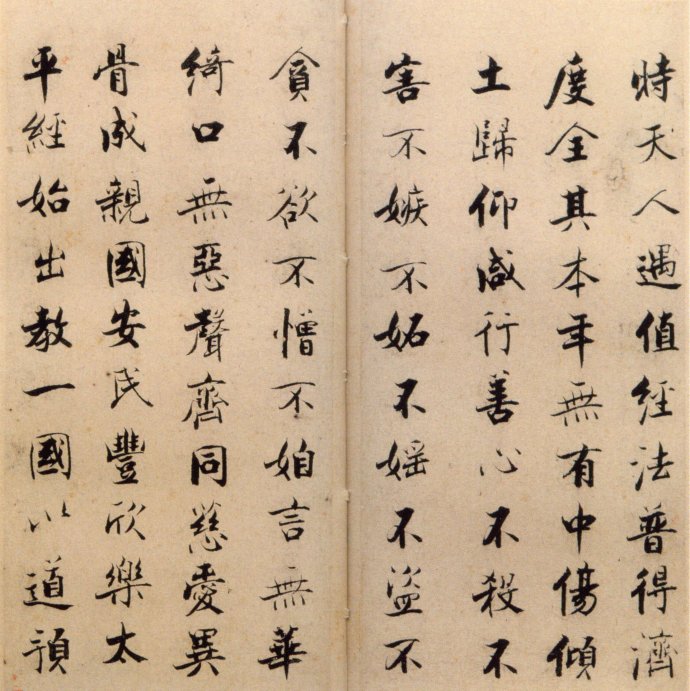 時天人遇值經法普得濟
度全其本年無有中傷傾
土歸仰咸行善心不殺不
害不嫉不妬不婬不盜不
貪不欲不憎不言無華
綺口無惡聲齊同慈愛異
骨成親國安民豐欣樂太
平經始出教一國以道預